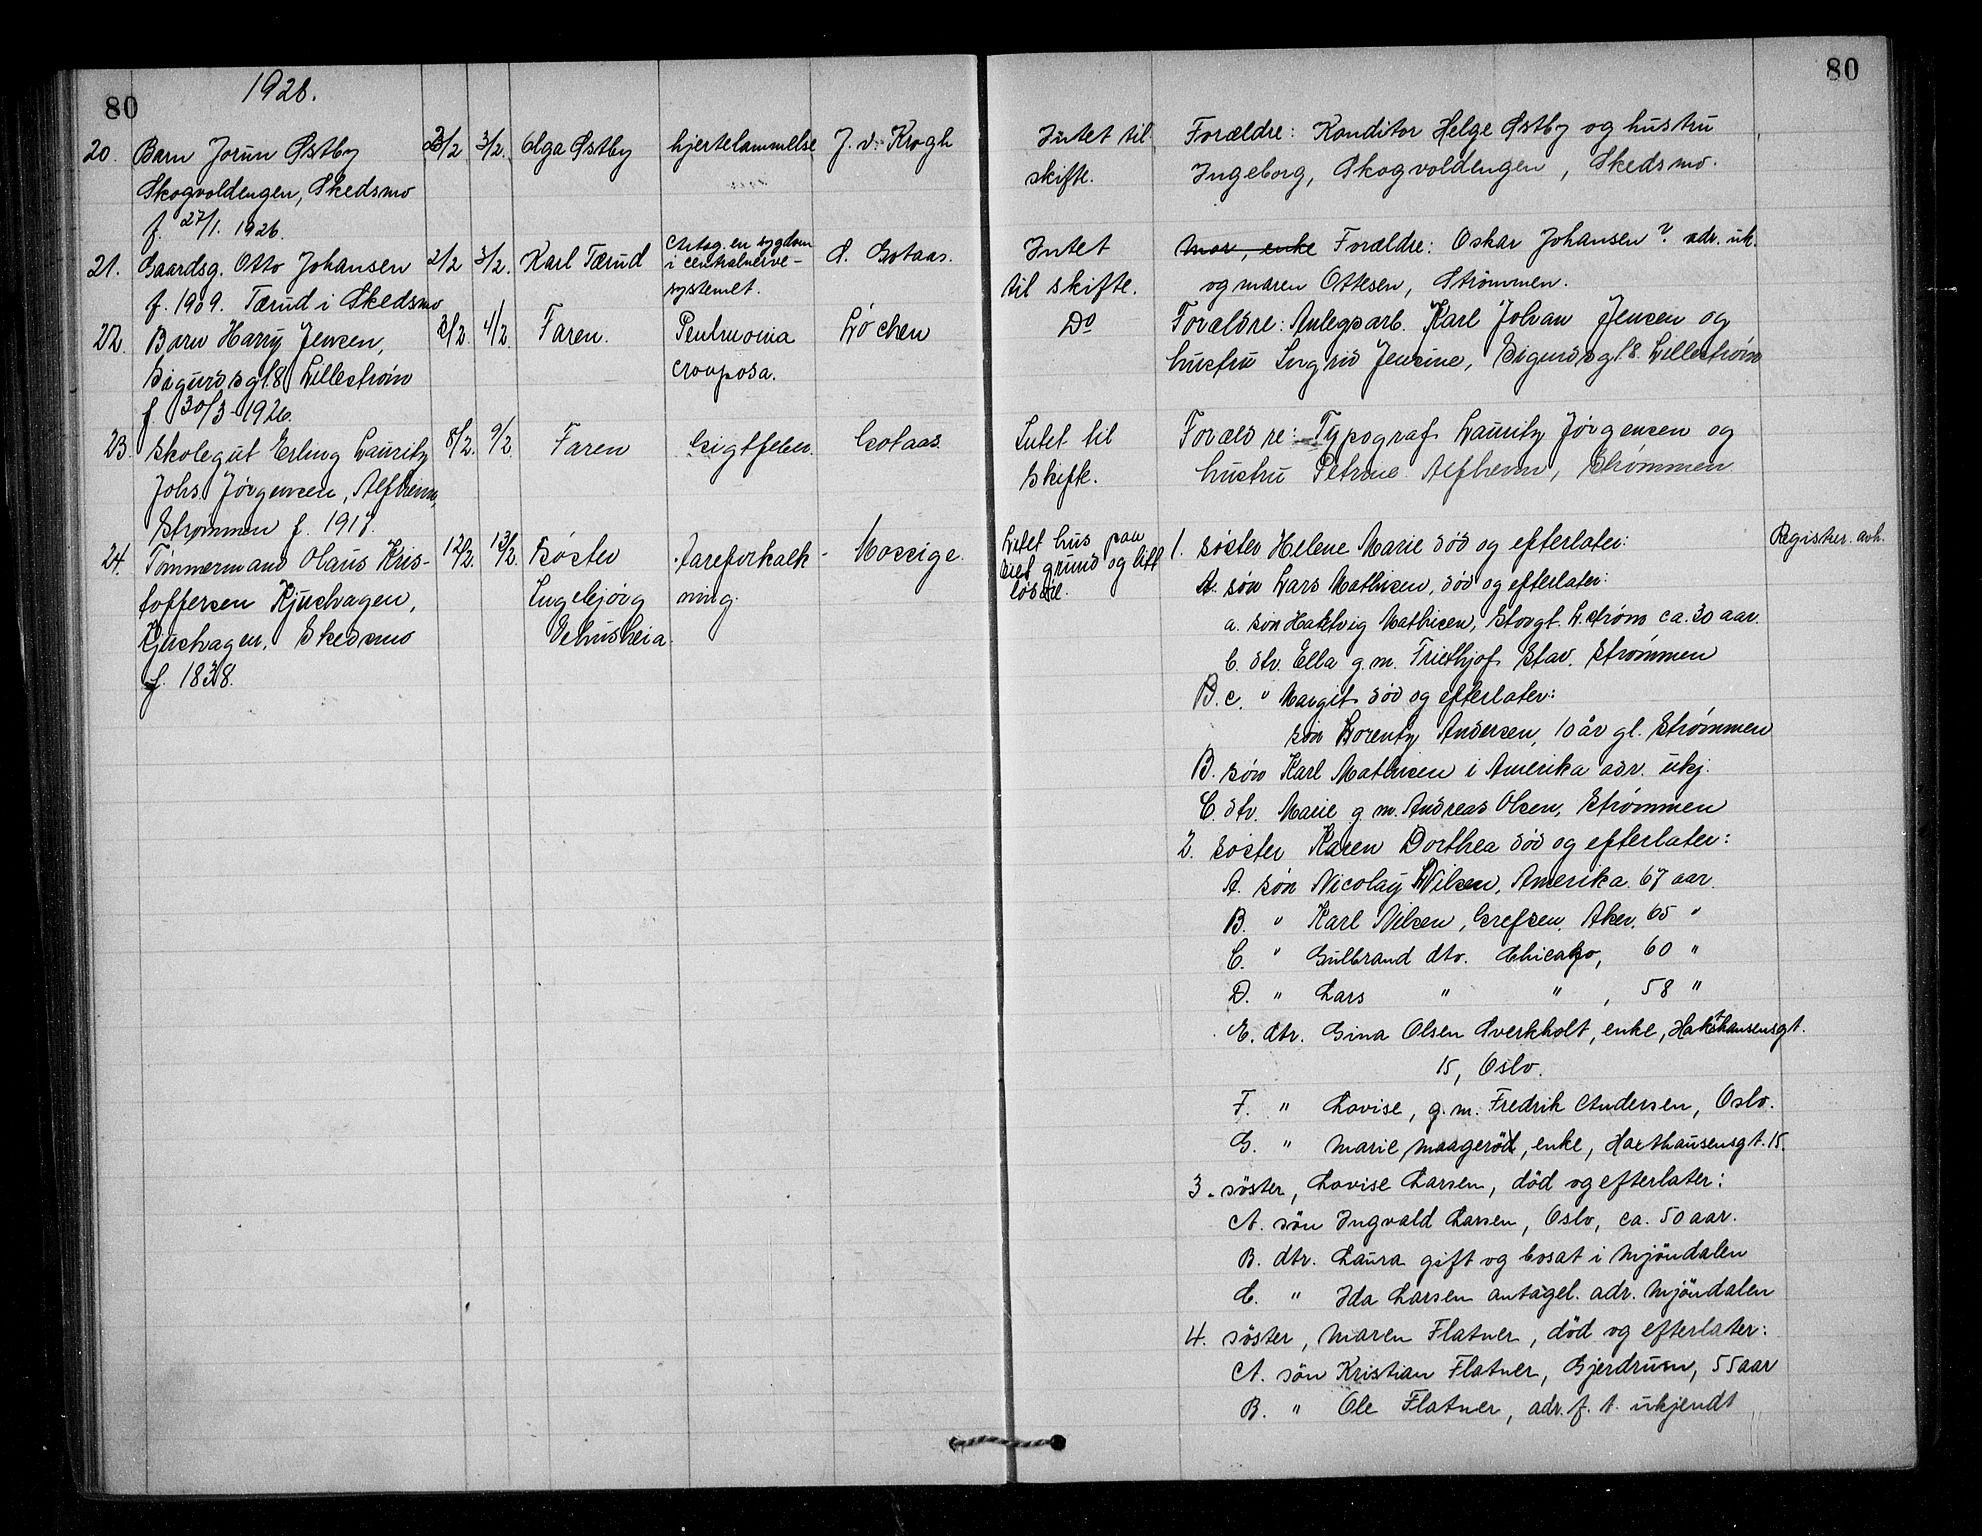 80
1928.
20. Barn Jorun Østby 2/2 3/2. Olga Østby hjertelammelse J. v. Krogh
Skogvoldengen, Skedsmo
f. 27/1. 1926.
21. Gaardsg. Otto Johansen 2/2 3/2. Karl Tærud Antag. en sygdom i centralnerve- systemet. Gotaas.
f. 1909. Tærud i Skedsmo
22. Barn Harry Jensen, 3/2. 4/2. Faren. Pentmonia crouposa. Løchen
Sigurdsgt. 8 Lillestrøm
f. 30/3 - 1926.
23. Skolegut Erling Lauritz 8/2. 9/2. Faren Gigtfeber. Gotaas
Johs. Jørgensen, Alfheim,
Strømmen f. 1917.
24. Tømmermand Olaus Kris- 12/2. 13/2. Søster Aareforkalk- Mossige.
toffersen Kjushagen, Ingebjørg ning.
Kjushagen, Skedsmo
f. 1838.
80
Intet til Forældre: Konditor Helge Østby og hustru
skifte. Ingeborg, Skogvoldengen, Skedsmo.
Intet Mor, enke Forældre: Oskar Johansen? adr. uk.
til skifte. og Maren Ottesen, Strømmen.
Do Forældre: Anlegsarb. Karl Johan Jensen og
hustru Ingrid Jensine, Sigurdsgt. 8. Lillestrøm
Intet til Forældre: Typograf Lauritz Jørgensen og
skifte. hustru Petrine Alfheim, Strømmen
Litet hus paa 1. søster Helene Marie død og efterlater: Register. avh.
eiet grund og litt A. søn Lars Mathisen, død og efterlater:
løsøre. a. søn Hartvig Mathisen, Storgt. L.strøm ca. 30 aar.
b. dtr. Ella g. m. Friethjof Stav. Strømmen
B. c. " Margit død og efterlater:
søn Lorentz Andersen, 10 år gl. Strømmen
B. søn Karl Mathisen i Amerika adr. ukj.
C. dtr. Marie g. m. Andreas Olsen, Strømmen
2. søster Karen Dorthea død og efterlater:
A. søn Nicolay Nilsen, Amerika. 67 aar.
B. " Karl Nilsen, Grefsen, Aker, 65 "
C. " Gulbrand dto. Chicago, 60 "
D. " Lars " " , 58 "
E. dtr. Gina Olsen Sverkholt, enke, Haxthausensgt.
15, Oslo.
F. " Lovise, g. m. Fredrik Andersen, Oslo.
G. " Marie Maagerød, enke, Haxthausensgt. 15.
3. søster, Lovise Larsen, død og efterlater:
A. søn Ingvald Larsen, Oslo, ca. 50 aar.
B. dtr. Laura gift og bosat i Mjøndalen
C. " Ida Larsen antagel. adr. Mjøndalen
4. søster, Maren Flatner, død og efterlater:
A. søn Kristian Flatner, Gjerdrum, 55 aar
B. " Ole Flatner, adr. f. t. ukjendt